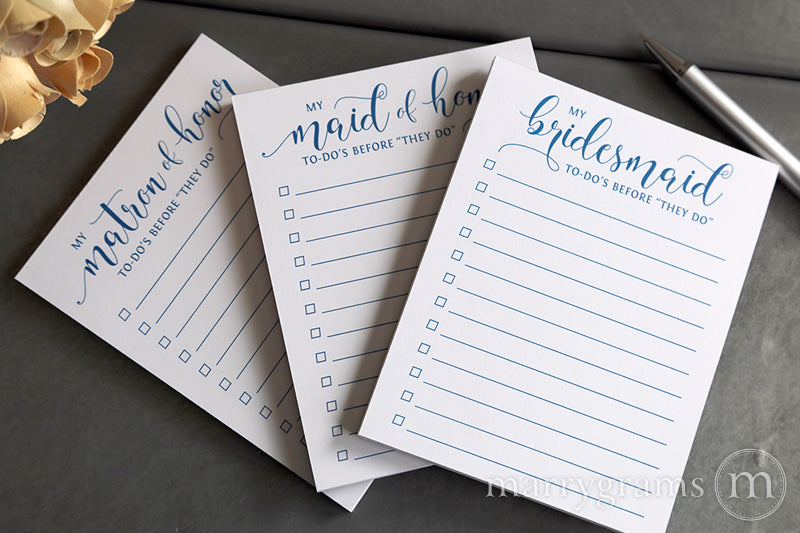 MY
matron of honor
TO-DO'S BEFORE "THEY DO"
MY
maid of hono
TO-DO'S BEFORE "THEY DO"
MY
bridesmaid
TO-DO'S BEFORE "THEY DO"
marrygrams m